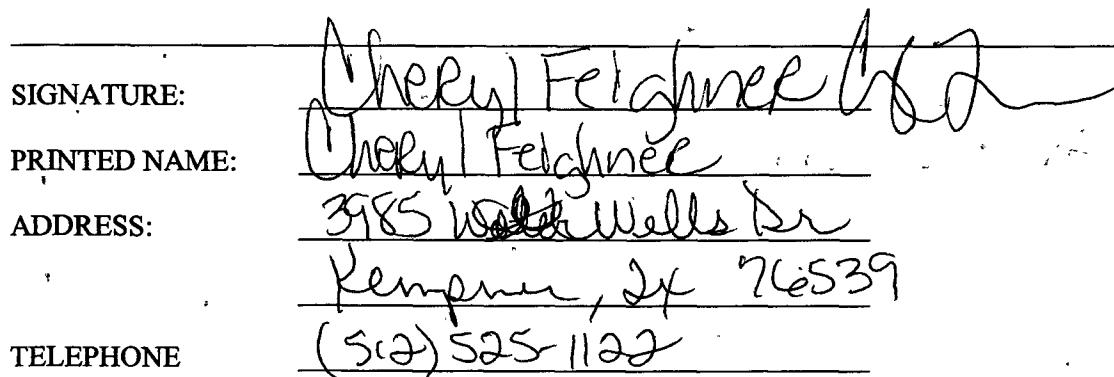 SIGNATURE: Cheryl Feighner
PRINTED NAME: Cheryl Feighner
ADDRESS: 3985 Wells Dr
Kempner, Tx 76539
TELEPHONE (512) 525-1122